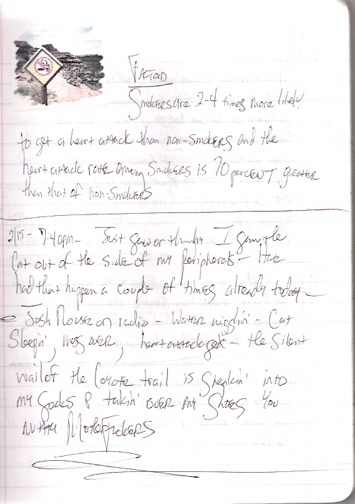 FACTOID
Smokers are 2-4 times more likely
to get a heart attack than non-smokers and the
heart attack rate among smokers is 70 percent greater
than that of non-smokers
2/15 - 7:40pm - Just saw or thought I saw the
cat out of the side of my peripherals - I've
had that happen a couple of times already today -
Josh Rouse on radio - Water - Cat
Sleepin', over, heart attack - the silent
wail of the Coyote trail is into
my socks & takin' over my shoes you
Mother Fuckers